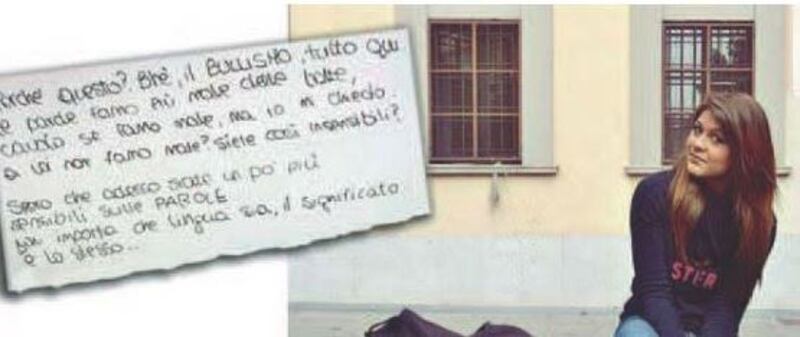 Perché questo? Bhé, il BULLISMO, tutto qui
Le parole fanno più male delle botte,
cavolo se fanno male, ma io mi chiedo:
a voi non fanno male? siete così insensibili?
Spero che adesso siate un po' più
sensibili sulle PAROLE
Non importa che lingua sia, il significato
è lo stesso...
STER